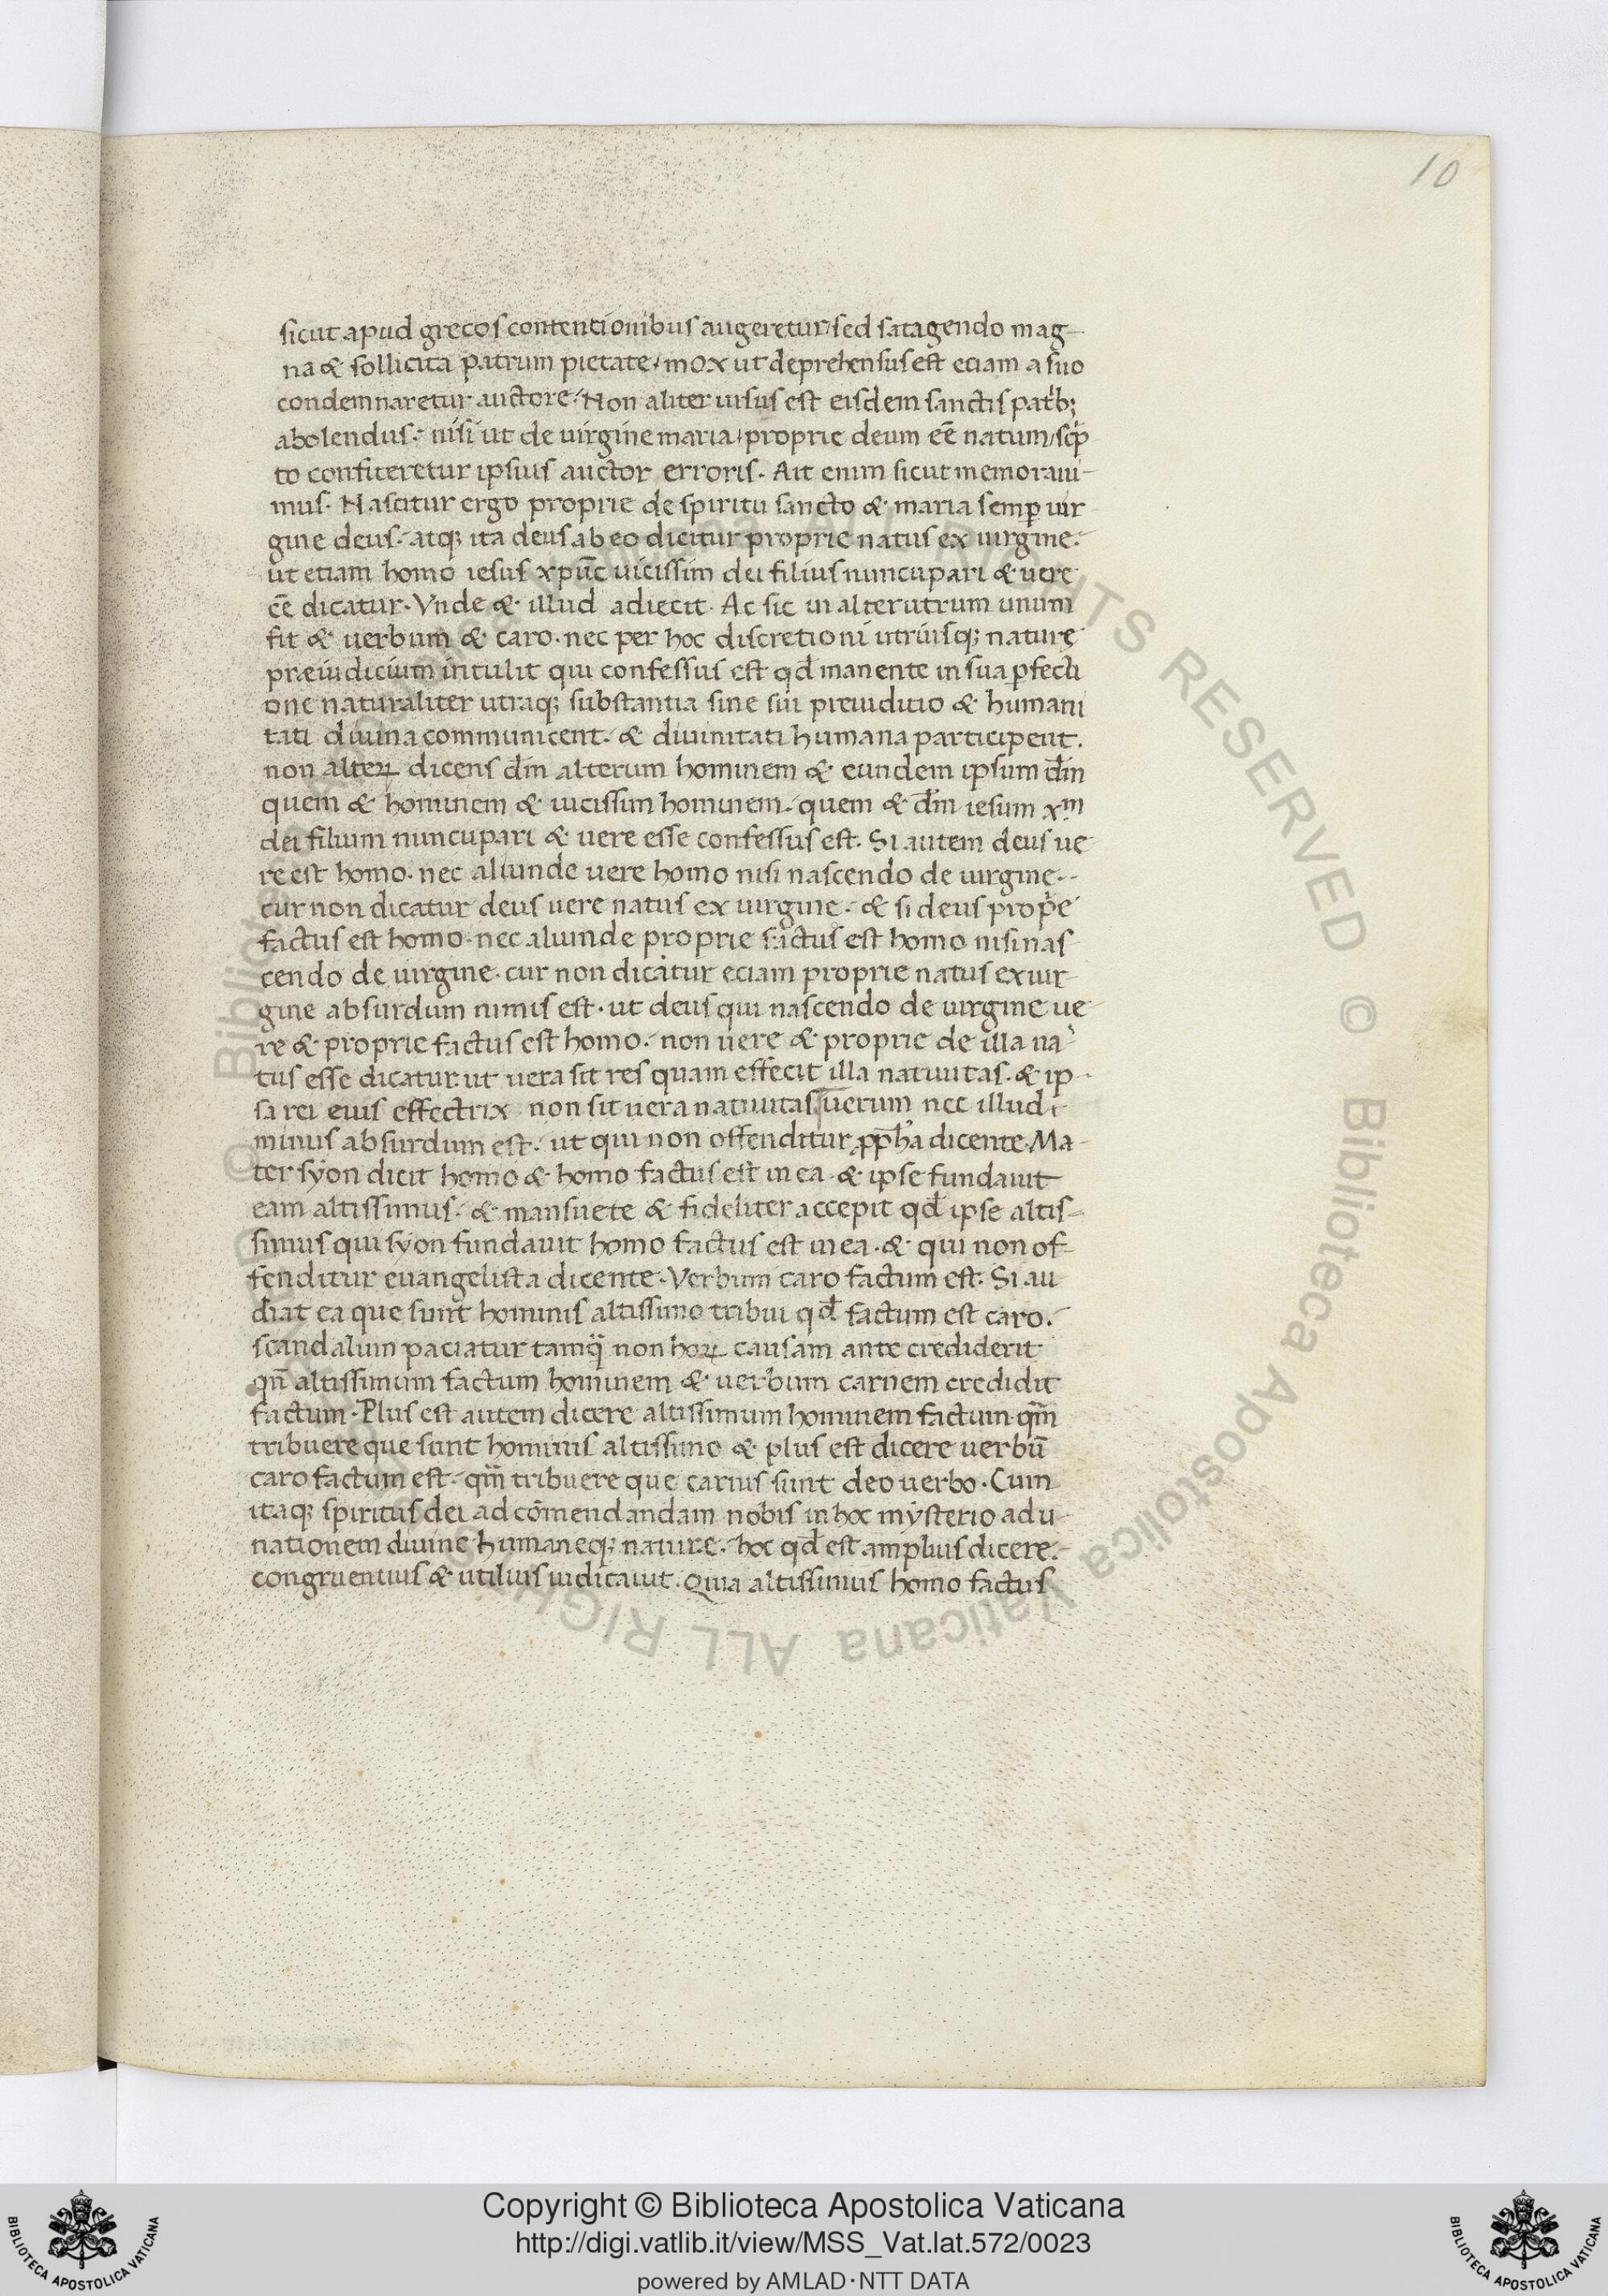 10
sicut apud grecos contentionibus augeretur, sed satagendo mag-
na & sollicita patrum pietate, mox ut deprehensus est eciam a suo
condemnaretur auctore. Non aliter uisus est eisdem sanctis patrib;
abolendus. nisi ut de uirgine maria, proprie deum eē natum, scͥp
to confiteretur ipsius auctor erroris. Ait enim sicut memoraui-
mus. Nascitur ergo proprie de spiritu sancto & maria semꝑ uir
gine deus. atq; ita deus ab eo dicitur proprie natus ex uirgine.
ut etiam homo iesus xp̄us uicissim dei filius nuncupari & uere
eē dicatur. Vnde & illud adiecit. Ac sic in alterutrum unum
fit & uerbum & caro. nec per hoc discretioni utriusq; naturę
præiudicium intulit qui confessus est qd̄ manente in sua ꝑfecti
one naturaliter utraq; substantia sine sui preiuditio & humani
tati diuina communicent. & diuinitati humana participent.
non alteꝝ dicens dm̄ alterum hominem & eundem ipsum dm̄
quem & hominem & uicissim hominem. quem & dm̄ iesum xᵐ
dei filium nuncupari & uere esse confessus est. Si autem deus ue
re est homo. nec aliunde uere homo nisi nascendo de uirgine.
cur non dicatur deus uere natus ex uirgine. & si deus propͥe
factus est homo. nec aliunde proprie factus est homo nisi nas
cendo de uirgine. cur non dicatur eciam proprie natus ex uir-
gine absurdum nimis est. ut deus qui nascendo de uirgine ue
re & proprie factus est homo. non uere & proprie de illa na
tus esse dicatur. ut uera sit res quam effecit illa natiuitas. & ip-
sa rei euis effectrix non sit uera natiuitas uerum nec illud
minus absurdum est. ut qui non offenditur ꝓpħa dicente. Ma-
ter syon dicit homo & homo factus est in ea. & ipse fundauit
eam altissimus. & mansuete & fideliter accepit qd̄ ipse altis-
simus qui syon fundauit homo factus est in ea. & qui non of-
fenditur euangelista dicente. Verbum caro factum est. Si au
diat ea que sunt hominis altissimo tribui qd̄ factum est caro.
scandalum paciatur tamq̄ non hoꝝ causam ante crediderit
qn̄ altissimum factum hominem & uerbum carnem credidit
factum. Plus est autem dicere altissimum hominem factum. qm̄
tribuere que sunt hominis altissimo & plus est dicere uerbū
caro factum est. qm̄ tribuere que carnis sunt deo uerbo. Cum
itaq; spiritus dei ad cōmendandam nobis in hoc mysterio adu-
nationem diuine humaneq; nature. hoc qd̄ est amplius dicere.
congruentius & utilius iudicauit. Quia altissimus homo factus
Copyright © Biblioteca Apostolica Vaticana
http://digi.vatlib.it/view/MSS_Vat.lat.572/0023
powered by AMLAD·NTT DATA